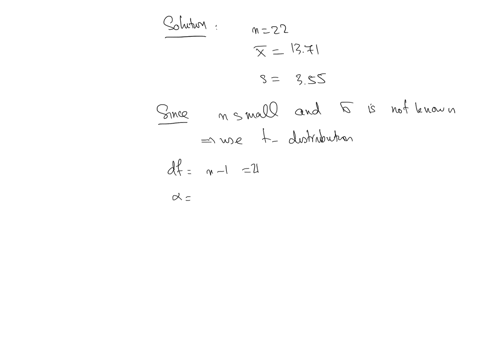 Solution : n = 22
x̄ = 13.71
s = 3.55
Since n small and σ is not known
⇒ use t- distribution
df = n-1 = 21
α =